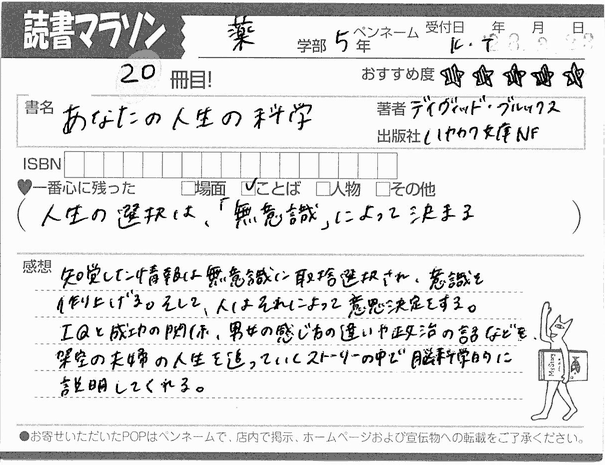 読書マラソン
薬 学部 5年 ペンネーム K.T 受付日 年 月 日
20 冊目! おすすめ度 ☆☆☆☆☆
書名 あなたの人生の科学 著者 デイヴィッド・ブルックス
出版社 ハヤカワ文庫NF
ISBN
♥一番心に残った □場面 ☑ことば □人物 □その他
(人生の選択は、「無意識」によって決まる)
感想
知覚した情報は無意識に取捨選択され、意識を
作り上げる。そして、人はそれによって意思決定をする。
IQと成功の関係、男女の感じ方の違いや政治の話などを、
架空の夫婦の人生を追っていくストーリーの中で脳科学的に
説明してくれる。
●お寄せいただいたPOPはペンネームで、店内で掲示、ホームページおよび宣伝物への転載をご了承ください。